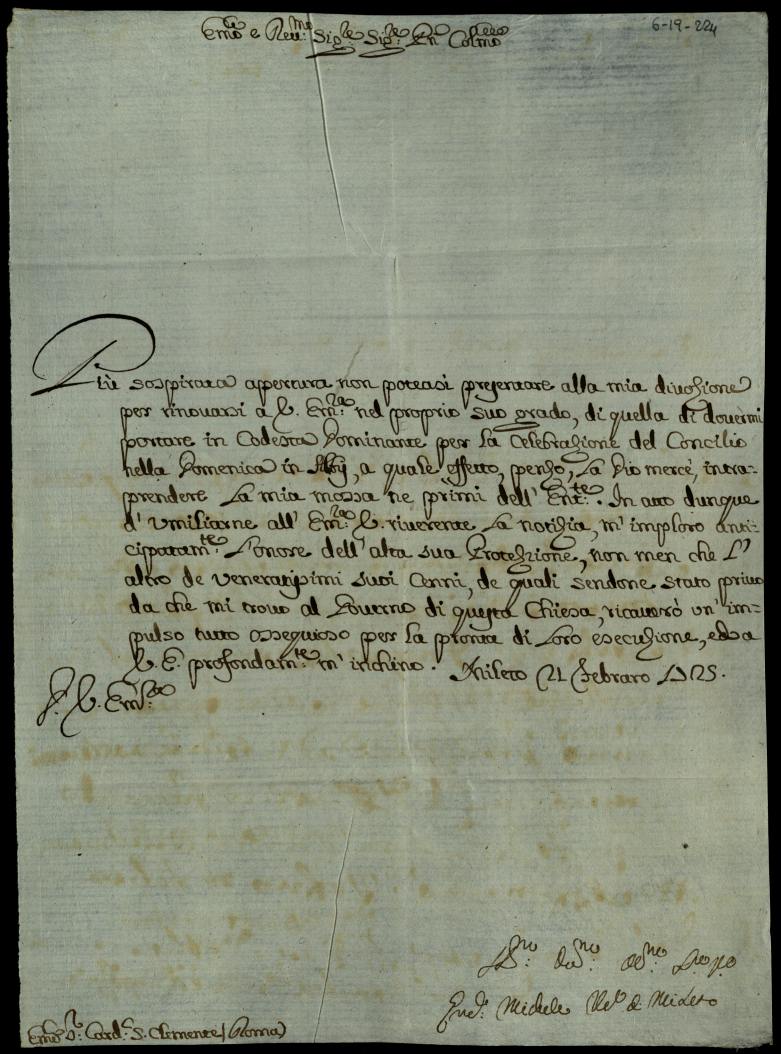 6-19-224
Em̃o e Reu:mo Sig:re Sig:re Pñ Colmo
Più sospirata apertura non poteasi presentare alla mia diuozione
per rinouarsi a V. Em:za nel proprio suo grado, di quella di douermi
portare in Codesta Dominante per la Celebrazione del Concilio
nella Domenica in Albij, a quale effetto, penso, la Dio mercè, intra-
prendere la mia mossa ne primi dell' Ent:te. In atto dunque
d' umiliarne all' Em:za V. riuerente la notizia, m' imploro anti-
cipatam:te l'onore dell' alta sua Protezzione, non men che l'
altro de veneratissimi suoi Cenni, de quali sendone stato priuo
da che mi trouo al Gouerno di questa Chiesa, ricauerò un' im-
pulso tutto ossequioso per la pronta di loro esecuzione, ed a
V. E. profondam:te m' inchino. Mileto 21 Febraro 1725.
D. V. Em:za
Michele Ves.o di Mileto
Em̃o S:r Card:l S. Clemente / Roma